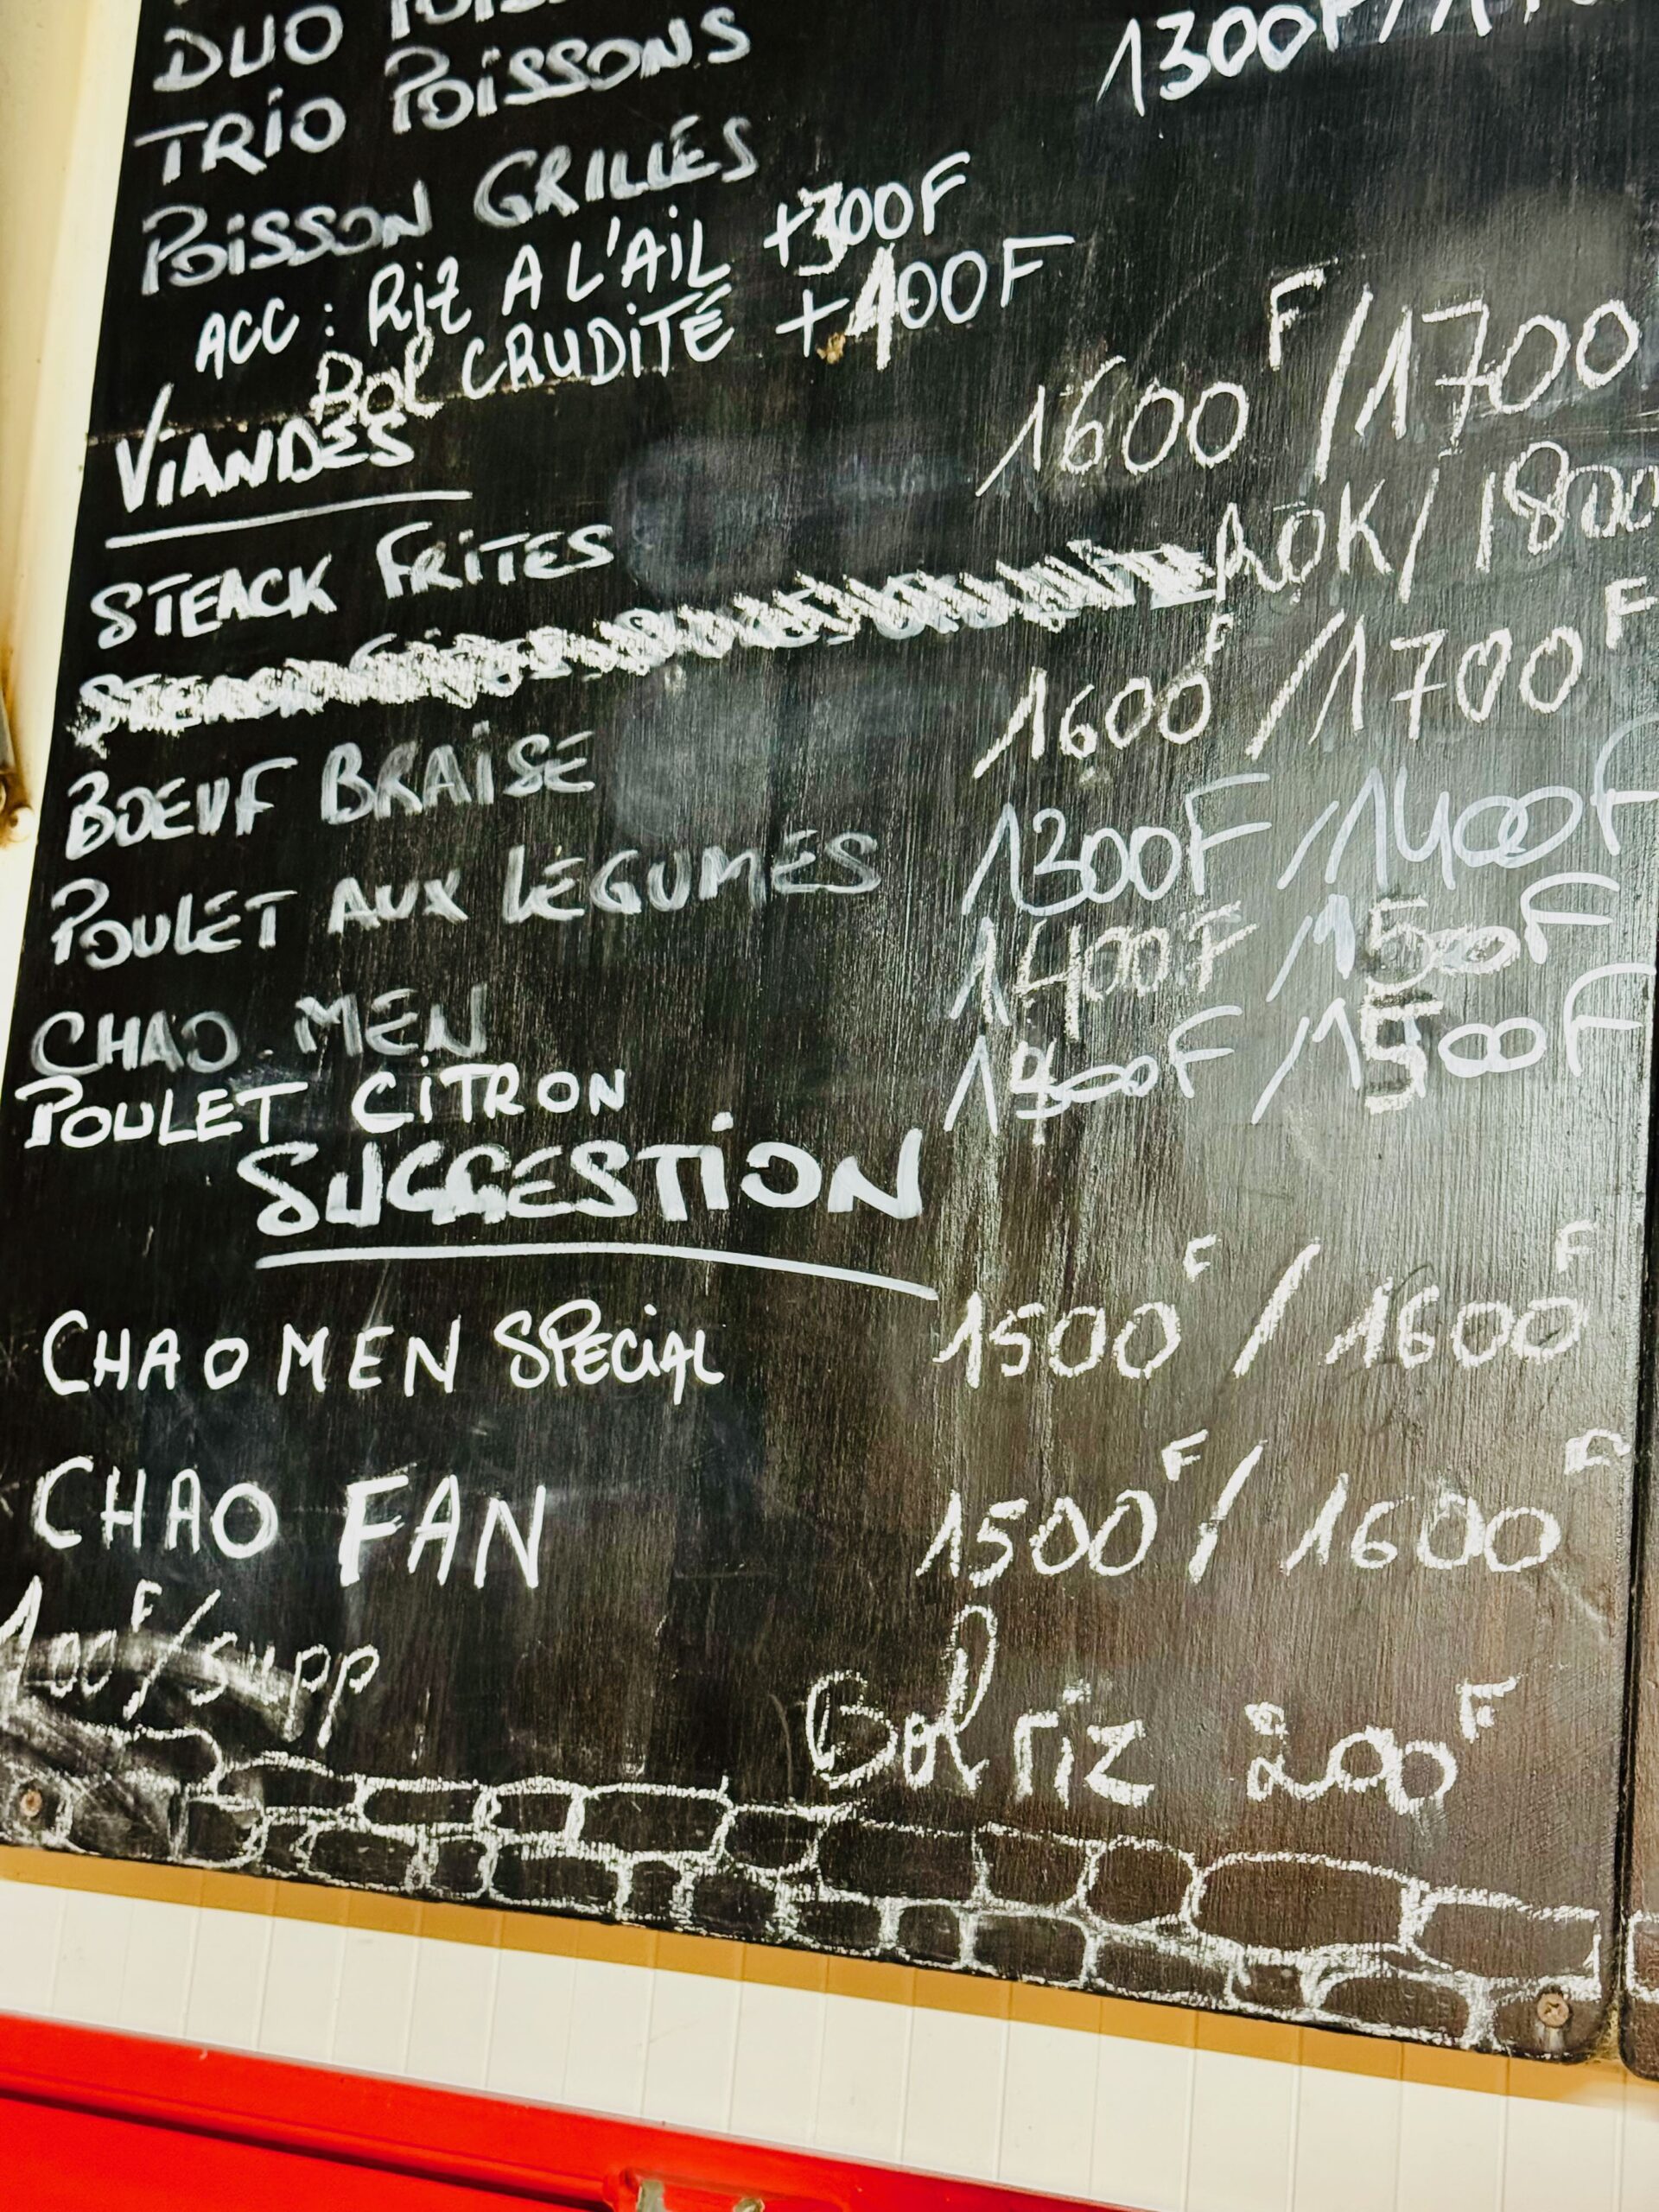 DUO
TRIO POISSONS 1300F/
POISSON GRILLES
ACC : Riz A L'AIL +300F
Bol CRUDITÉ +400F
VIANDES
STEACK FRITES 1600F/1700
ROK/1800
BOEUF BRAISE 1600F/1700F
POULET AUX LEGUMES 1300F/1400F
CHAO MEN 1400F/1500F
POULET CITRON 1400F/1500F
SUGGESTION
CHAO MEN SPECIAL 1500F/1600F
CHAO FAN 1500F/1600F
100F/supp
Bol riz 200F